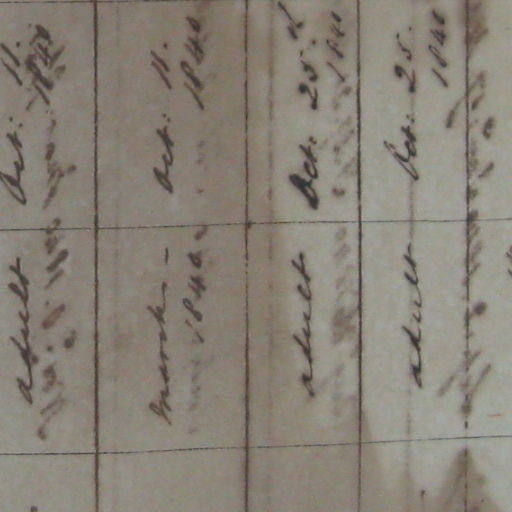 adult Oct: 11.
1840
March - Oct: 11.
1840 1840
adult Oct: 25.
1840
adult Oct: 25.
1840